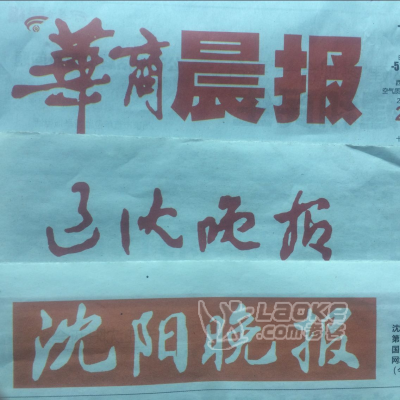 華商晨报
辽沈晚报
沈阳晚报
LAOKE
.com